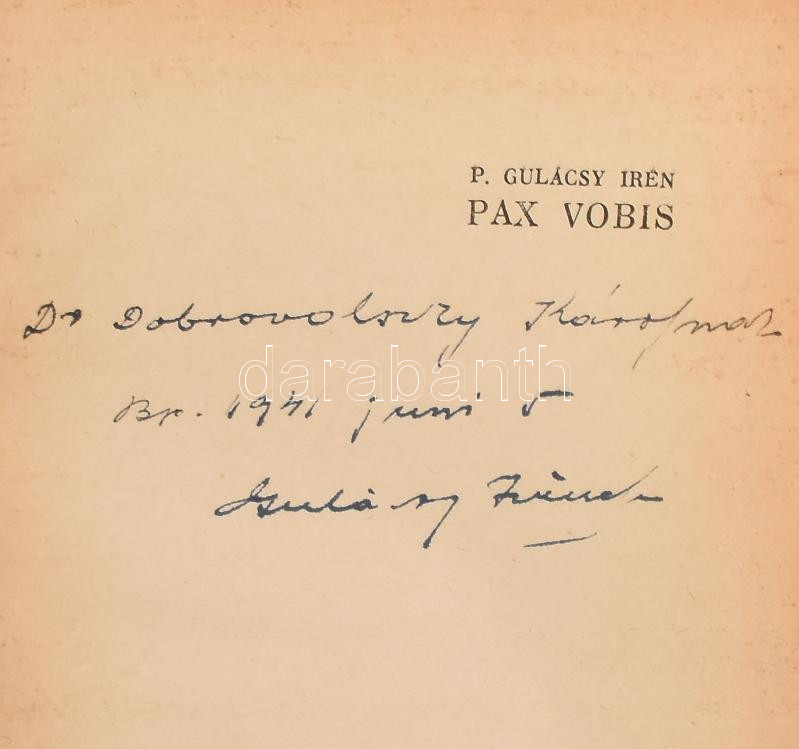 P. GULÁCSY IRÉN
PAX VOBIS
Dr Dobrovolszky Károlynak
darabanth
Bp. 1941 juni 5
Gulácsy Irén